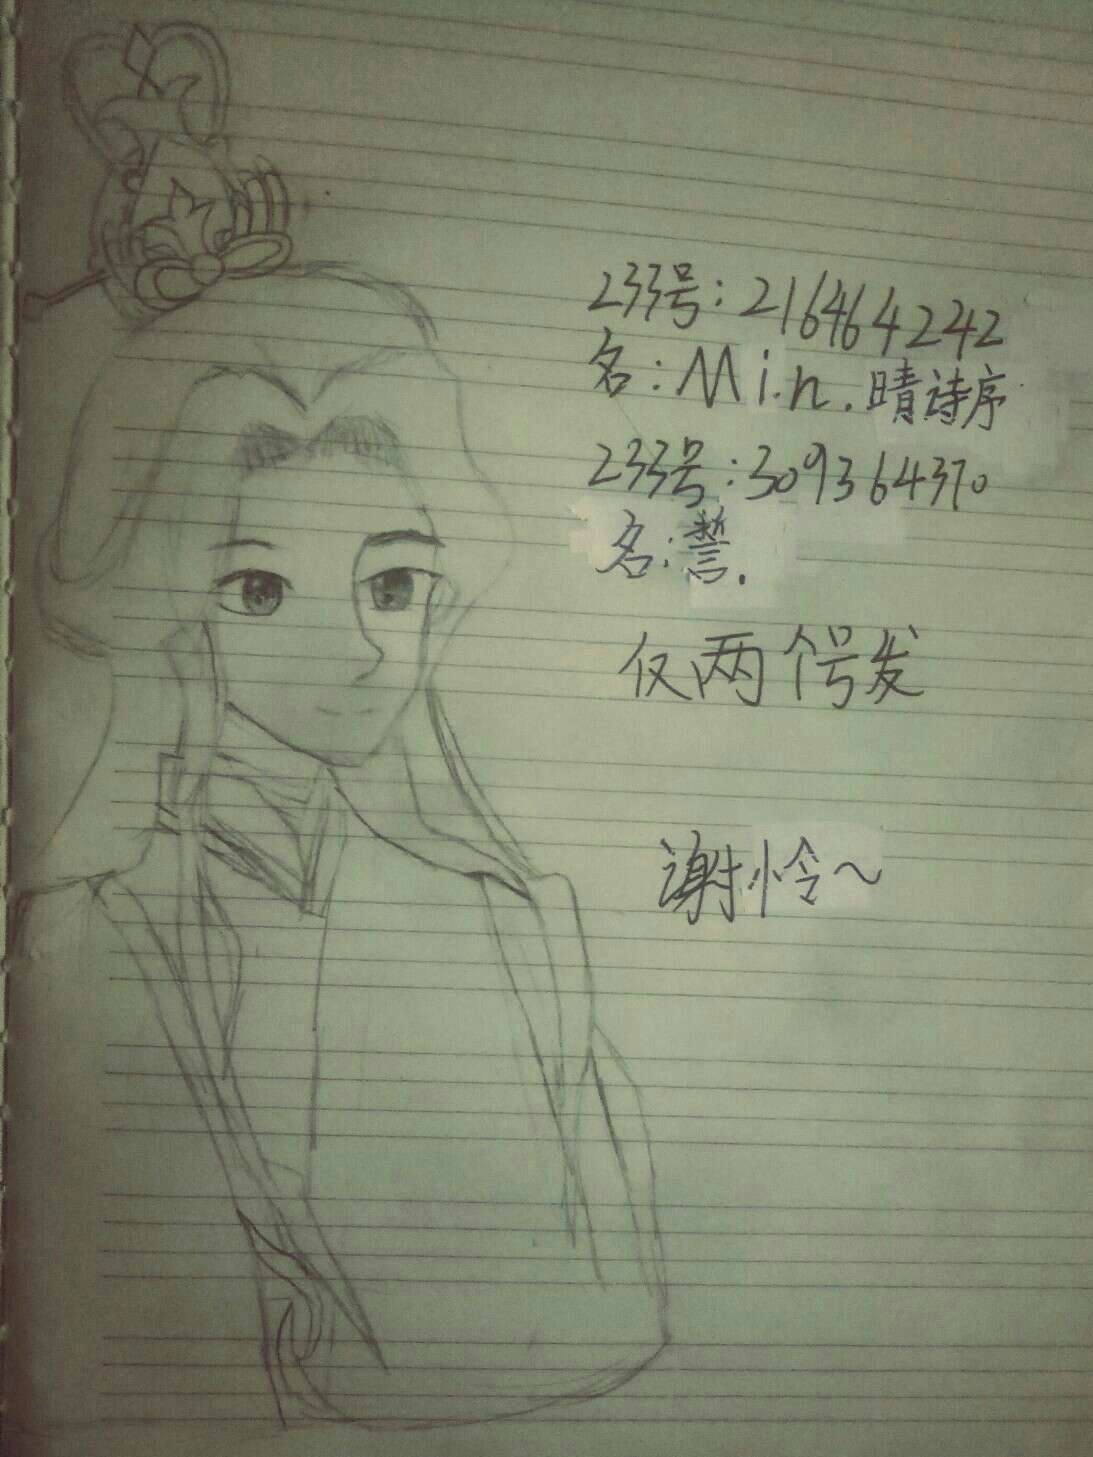 233号:216464242
名:Min.晴诗序
233号:309364370
名:誓.
仅两个号发
谢怜~